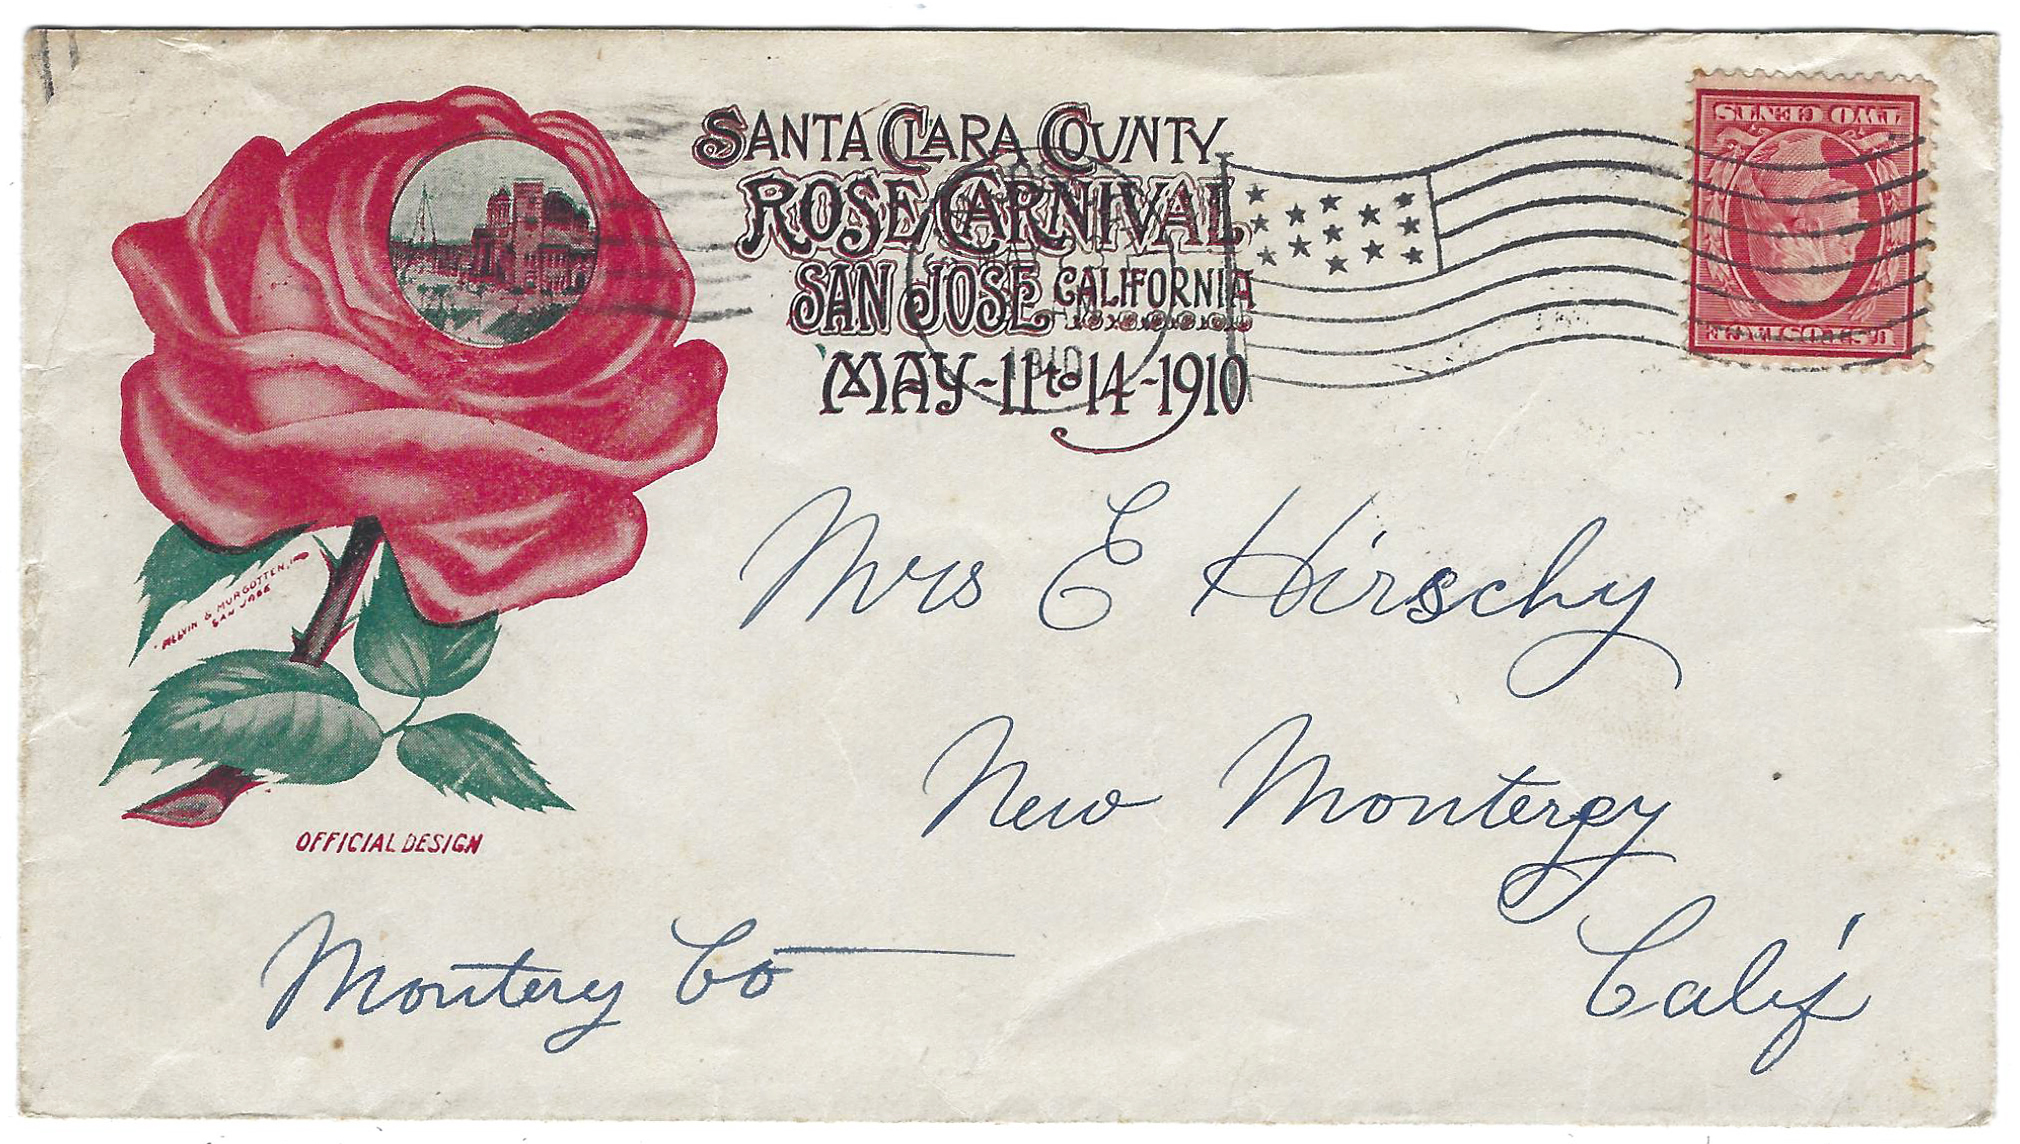 SANTA CLARA COUNTY
ROSE CARNIVAL
SAN JOSE CALIFORNIA
MAY-11to14-1910
TWO CENTS
U.S. POSTAGE
1910
MELVIN & MURGOTTEN, INC
SAN JOSE
OFFICIAL DESIGN
Mrs E Hirschy
New Monterey
Calif
Montery Co